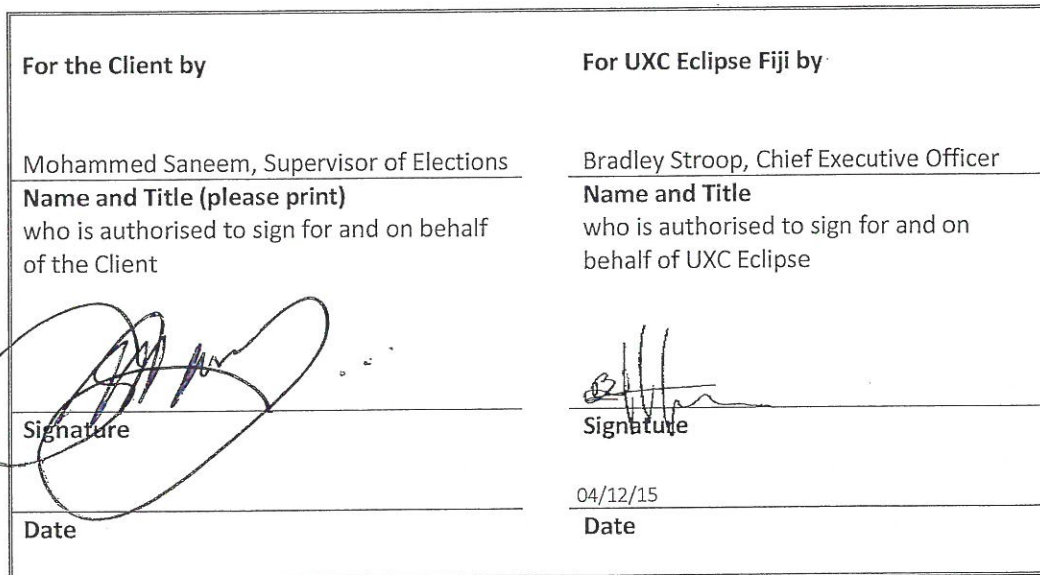 For the Client by
Mohammed Saneem, Supervisor of Elections
Name and Title (please print)
who is authorised to sign for and on behalf
of the Client
Signature
Date
For UXC Eclipse Fiji by
Bradley Stroop, Chief Executive Officer
Name and Title
who is authorised to sign for and on
behalf of UXC Eclipse
Signature
04/12/15
Date